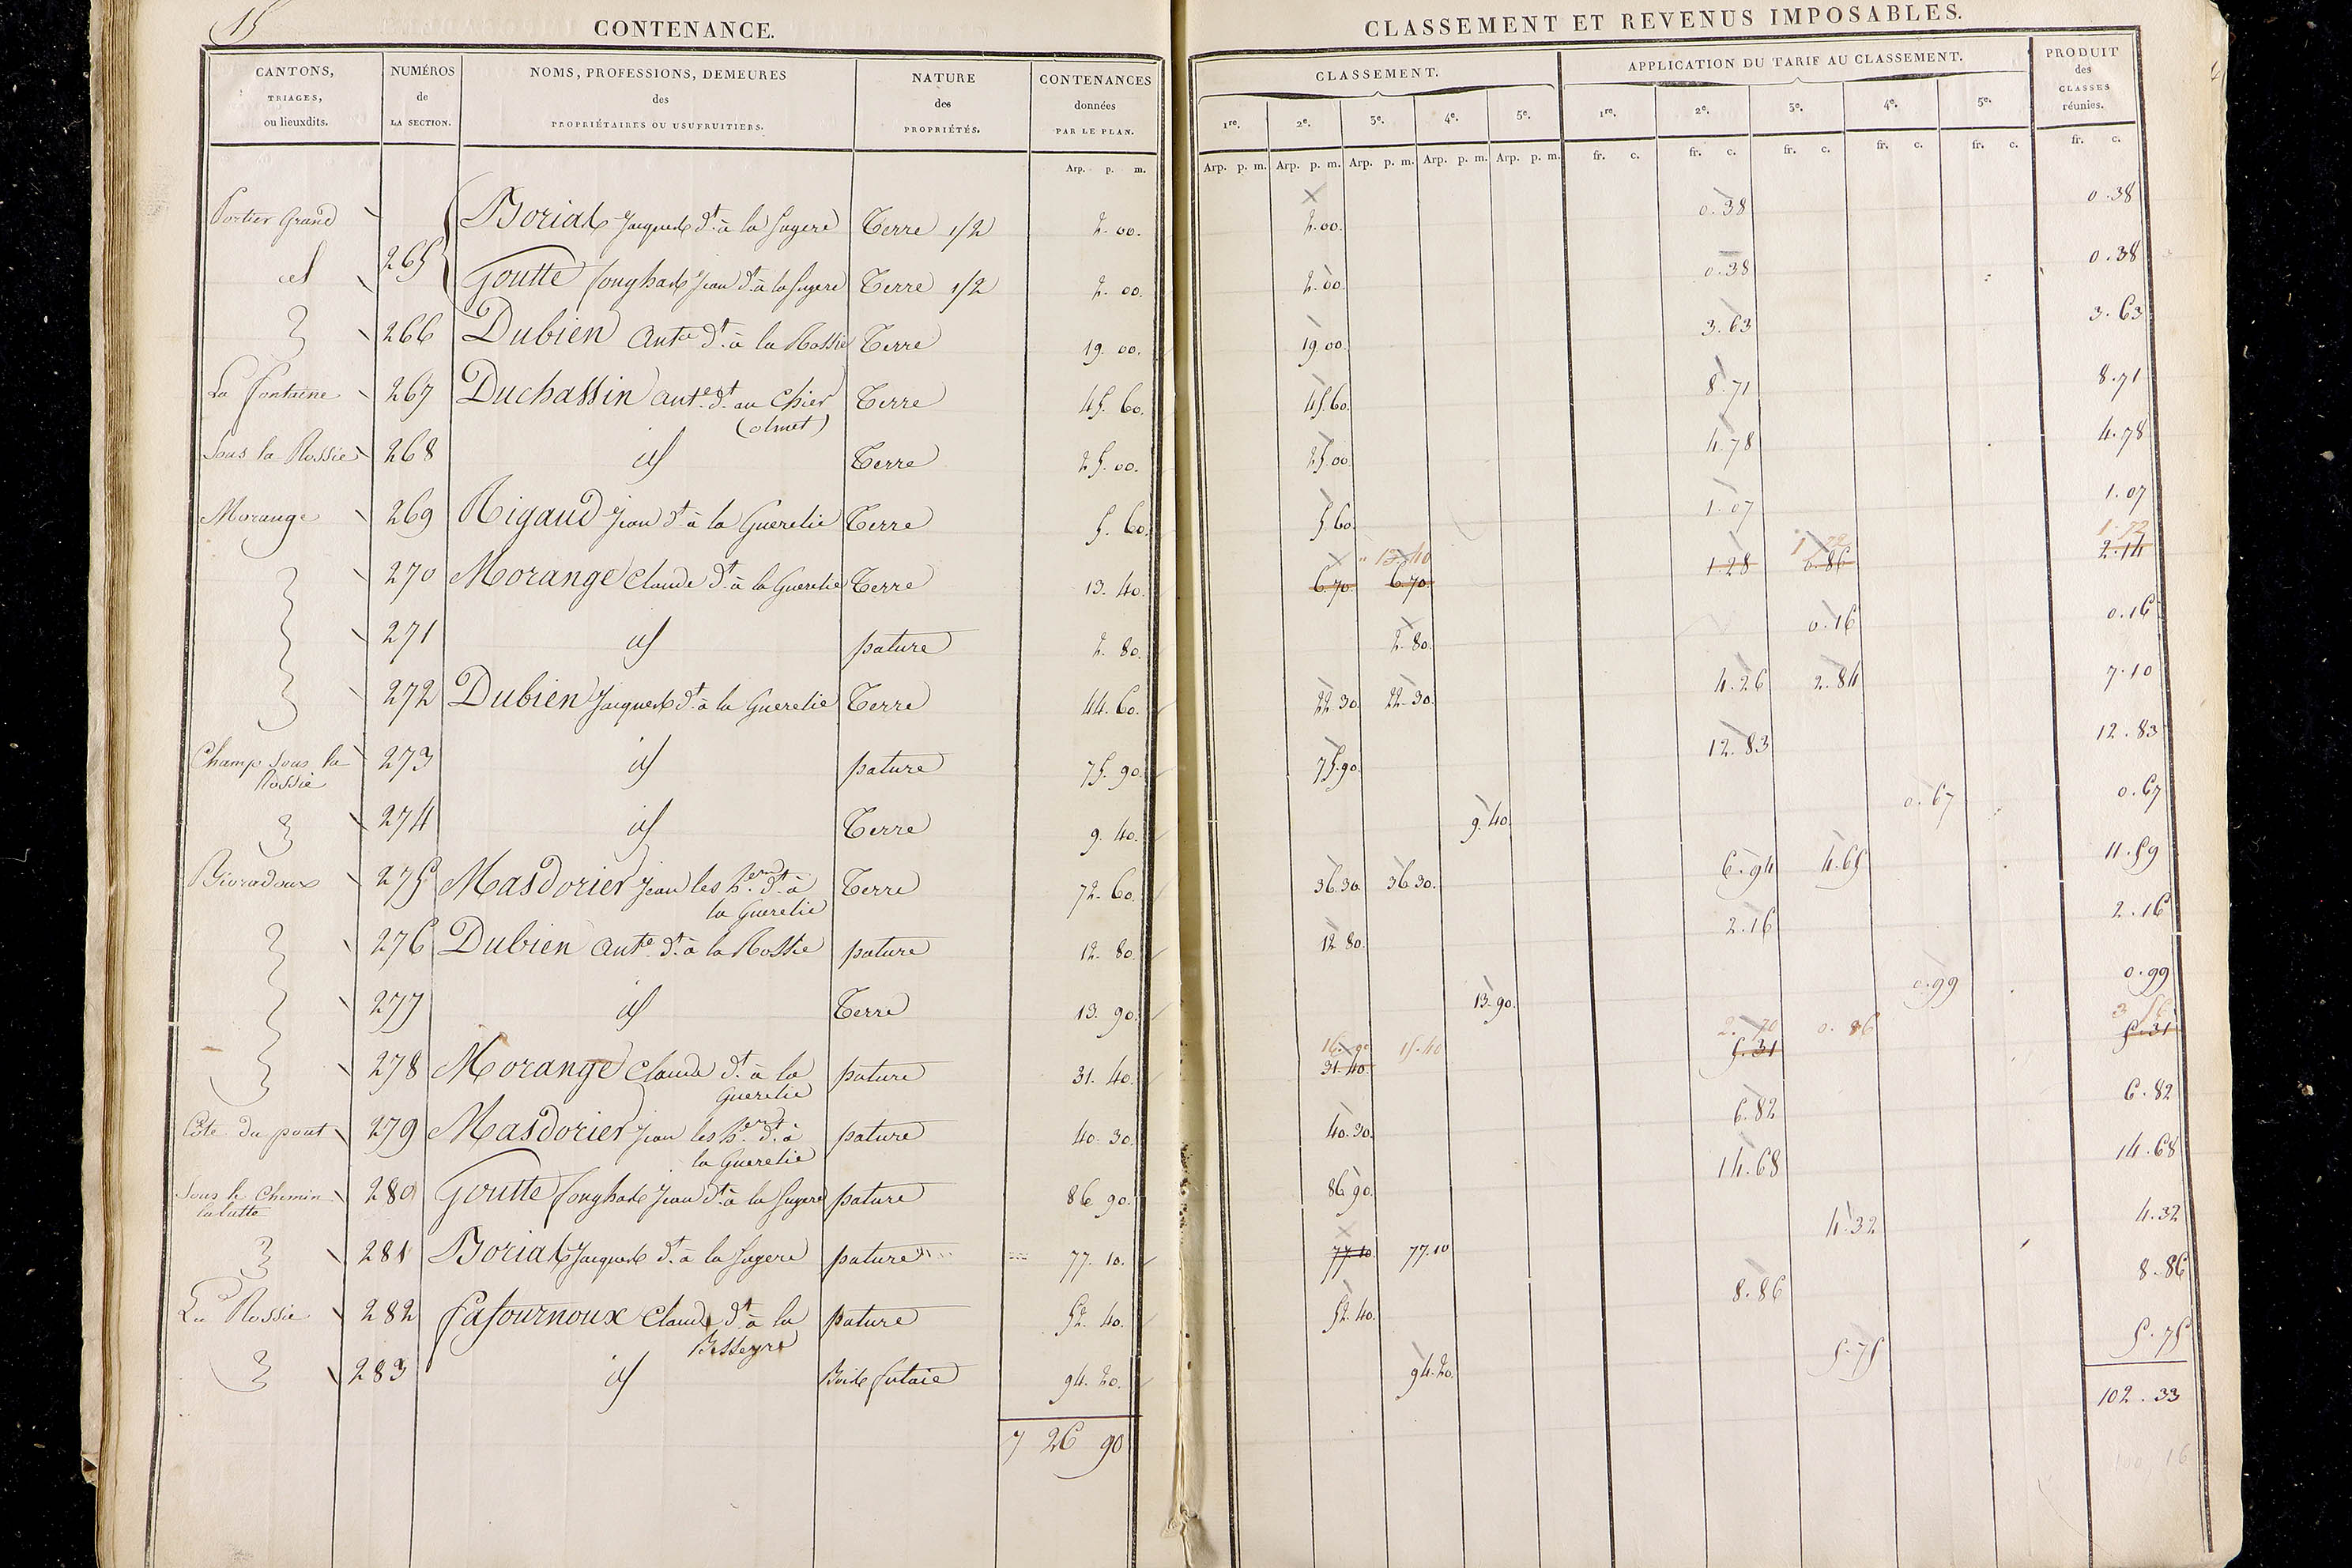 15
CONTENANCE.
CANTONS, TRIAGES, ou lieuxdits. NUMÉROS de LA SECTION. NOMS, PROFESSIONS, DEMEURES des PROPRIÉTAIRES OU USUFRUITIERS. NATURE des PROPRIÉTÉS. CONTENANCES données PAR LE PLAN.
Arp. p. m.
CLASSEMENT ET REVENUS IMPOSABLES.
CLASSEMENT. APPLICATION DU TARIF AU CLASSEMENT. PRODUIT des CLASSES réunies.
1re. 2e. 3e. 4e. 5e. 1re. 2e. 3e. 4e. 5e.
Arp. p. m. Arp. p. m. Arp. p. m. Arp. p. m. Arp. p. m. fr. c. fr. c. fr. c. fr. c. fr. c. fr. c.
Portier Grand 265 Boriat Jacques dt. à la Sugere Terre 1/2 2. 00. 2. 00. 0.38 0.38
id Goutte Jean dt. à la Sugere Terre 1/2 2. 00. 2. 00. 0.38 0.38
266 Dubien Ante dt. à la Rossie Terre 19. 00. 19. 00. 3.63 3.63
La fontaine 267 Duchassin Ante dt. au Chier Terre 45. 60. 45. 60. 8.71 8.71
(olmet)
Sous la Rossie 268 id Terre 25. 00. 25. 00. 4.78 4.78
Morange 269 Rigaud Jean dt. à la Guerelie Terre 5. 60. 5. 60. 1.07 1.07
13.40 1.72 1.72
270 Morange Claude dt. à la Guerelie Terre 13. 40. 6.70. 6.70. 1.28 0.86 2.14
271 id pature 2. 80. 2. 80. 0.16 0.16
272 Dubien Jacques dt. à la Guerelie Terre 44. 60. 22. 30. 22. 30. 4.26 2.84 7.10
Champ sous la 273 id pature 75. 90. 75. 90. 12.83 12.83
Rossie
274 id Terre 9. 40. 9. 40. 0.67 0.67
275 Masdorier Jean les hers. dt. à Terre 72. 60. 36. 30. 36. 30. 6.94 4.65 11.59
la Guerelie
276 Dubien Ante. dt. à la Rossie pature 12. 80. 12 80. 2.16 2.16
277 id Terre 13. 90. 13. 90. 0.99 0.99
15.40 2.70 0.86 3.56
278 Morange Claude dt. à la pature 31. 40. 31. 40. 5.31 5.31
Guerelie
Côte du pont 279 Masdorier Jean les hers. dt. à pature 40. 30. 40. 30. 6.82 6.82
la Guerelie
Sous le Chemin 280 Goutte Jean dt. à la Sugere pature 86 90. 86 90. 14.68 14.68
281 Boriat Jacques dt. à la Sugere pature 77. 10. 77. 10. 77.10 4.32 4.32
La Rossie 282 Lafournoux Claude dt. à la pature 52. 40. 52. 40. 8.86 8.86
Besseyre
283 id Bois futaie 94. 20. 94. 20. 5.75 5.75
7 26 90
102.33